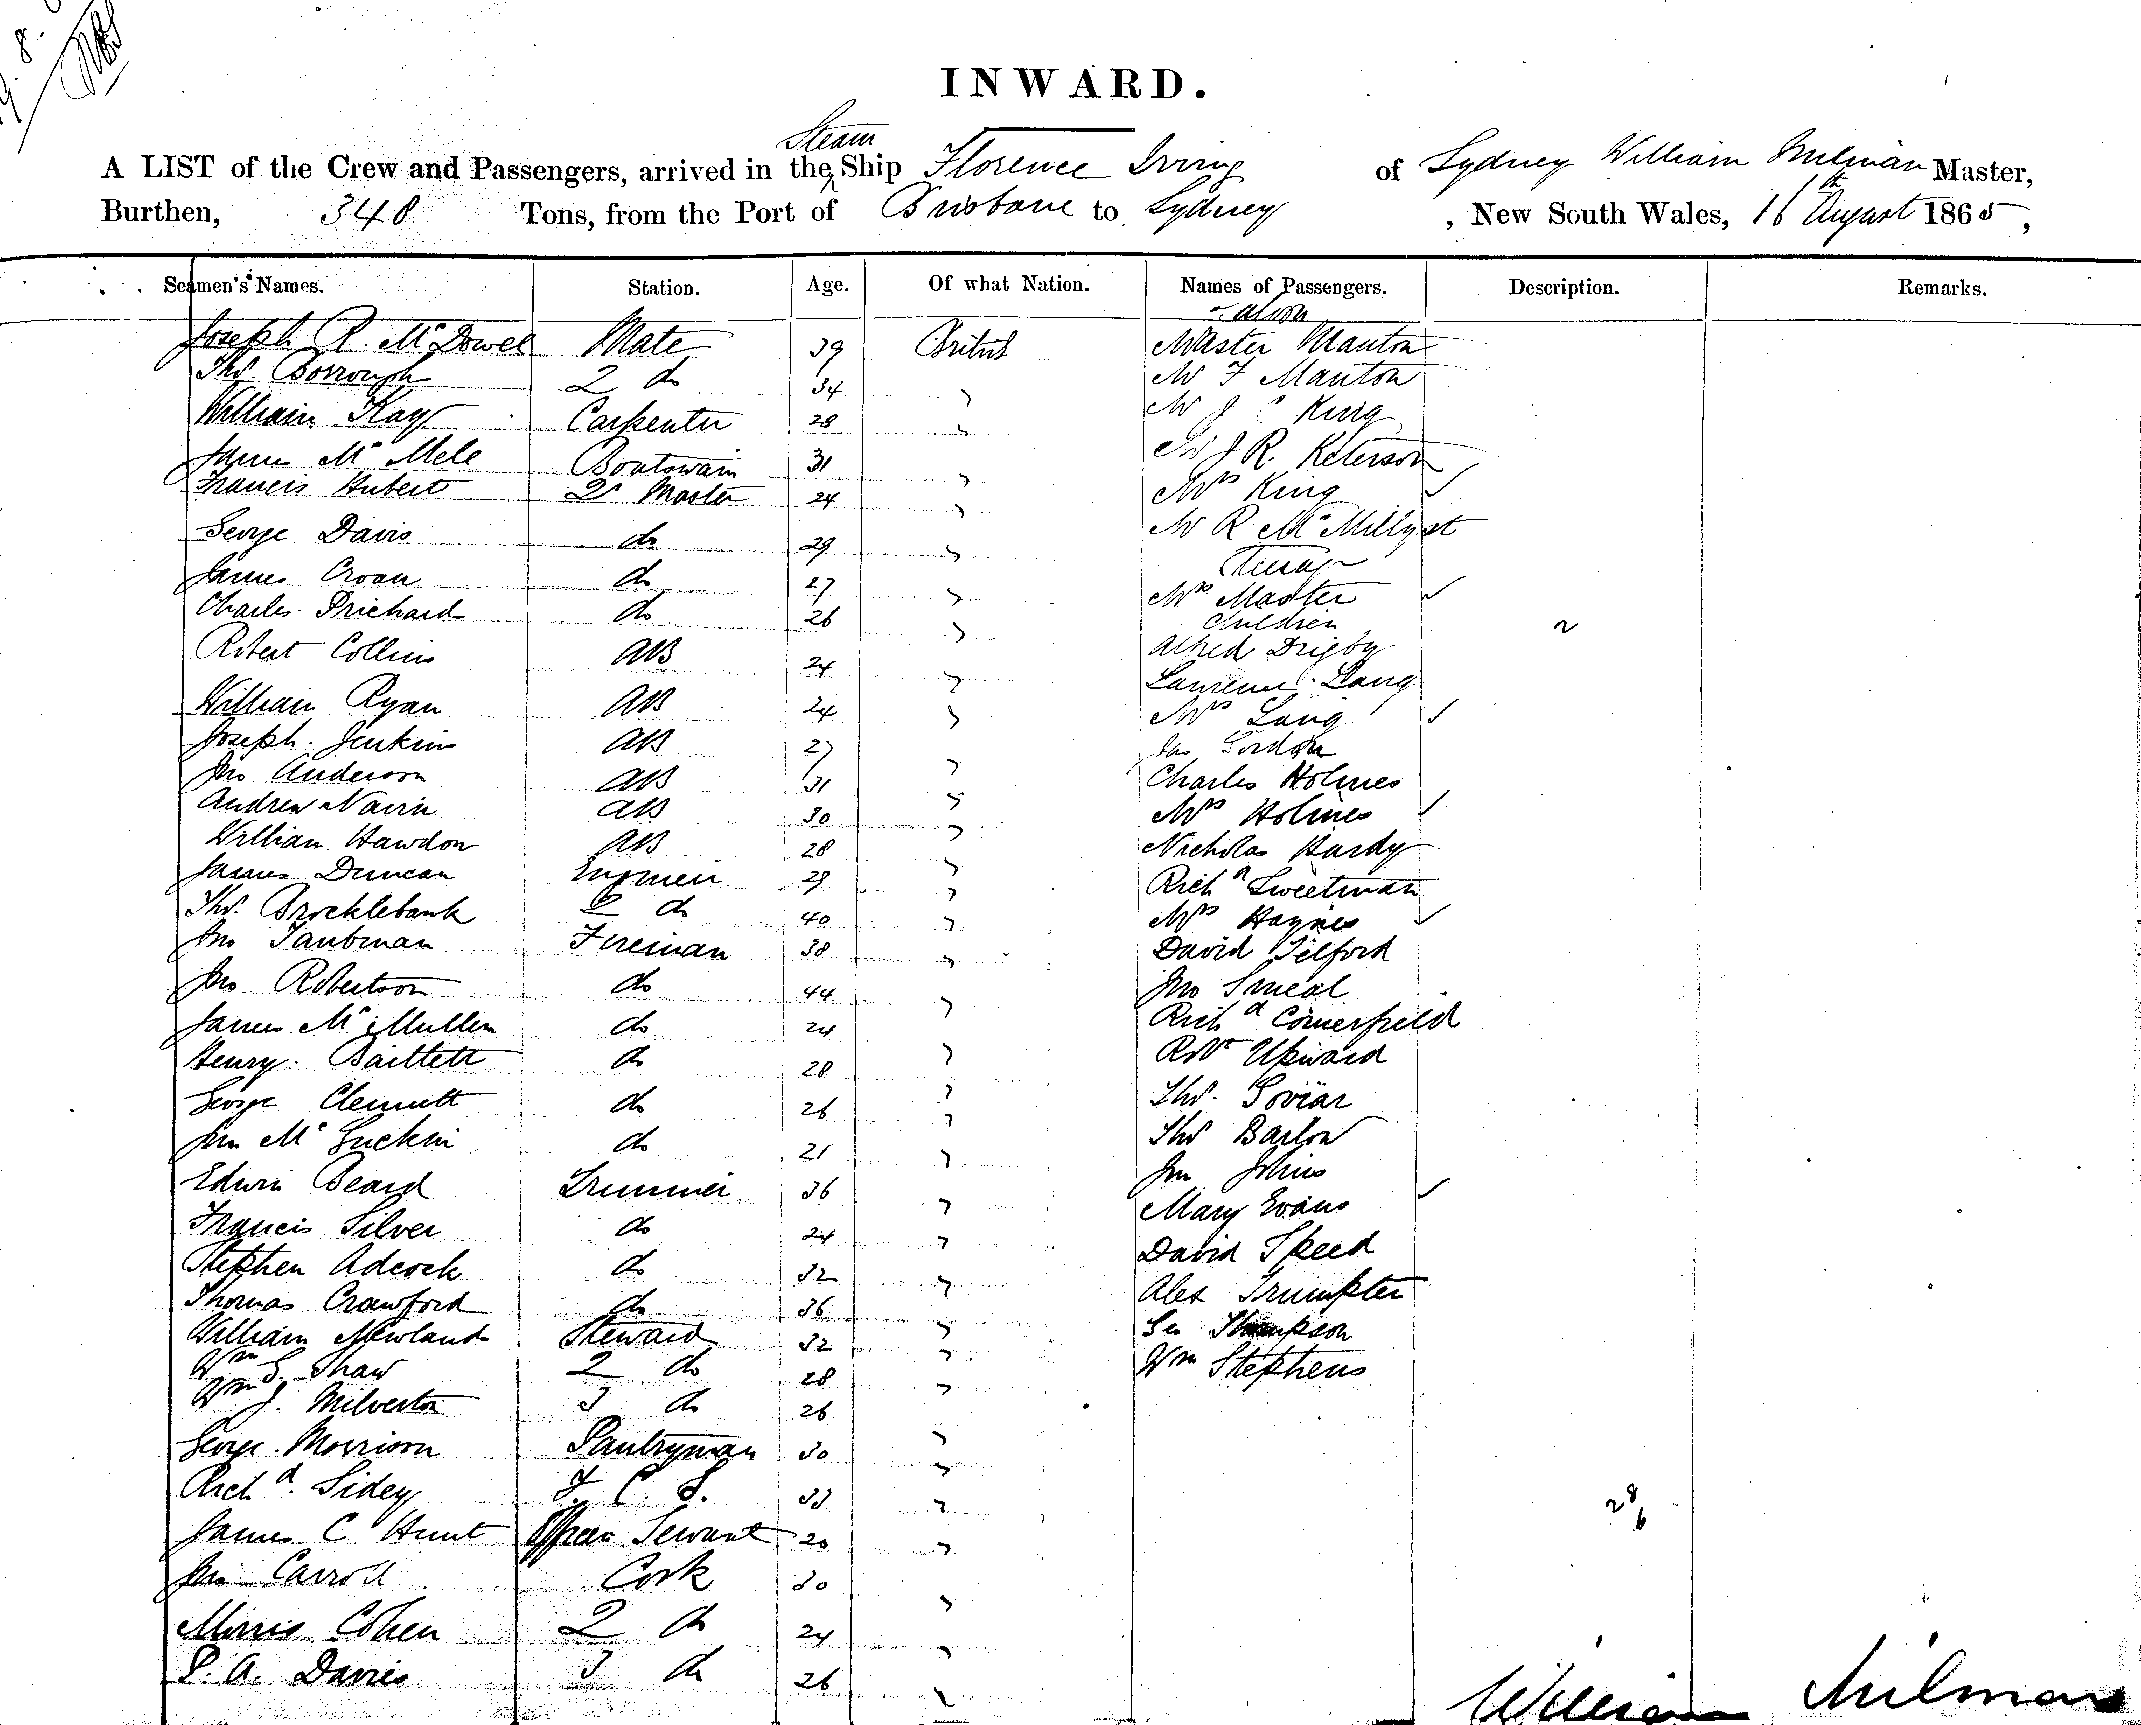 INWARD.
Steam
A LIST of the Crew and Passengers, arrived in the Ship Florence Irving of Sydney William Milman Master,
Burthen, 348 Tons, from the Port of Brisbane to Sydney , New South Wales, 16th August 1865,
Seamen's Names. Station. Age. Of what Nation. Names of Passengers. Description. Remarks.
Saloon
Joseph R. McDowel Mate 39 British Master Manton
Thos. Borrough 2 do 34 " Mr F Manton
William Kay Carpenter 28 " Mr J C King
James Mc Mele Boatswain 31 " Mr J R Keterson
Francis Hubert Qr Master 24 " Mrs King ✓
George Davis do 29 " Mr R Mc
Steerage
James Croan do 27 " Mrs Master ✓
Charles Prichard do 26 " Children 2
Robert Collins AB 24 " Alfred Drigby
Laurence Lang
William Ryan AB 24 " Mrs Lang ✓
Joseph Jenkins AB 27 " Jas Gordon
Jno Anderson AB 31 " Charles Holmes
Andrew Navin AB 30 " Mrs Holmes ✓
William Hawdon AB 28 " Nicholas Hardy
James Duncan Engineer 29 " Richd Sweetman
Thos. Brocklebank 2 do 40 " Mrs Haynes ✓
Jno Taubman Fireman 38 " David Telford
Jno Robertson do 44 " Jno Smeal
James McMullen do 24 " Richd Comerfield
Henry Bartlett do 28 " Robt Upward
George Clennett do 26 " Thos. Goviar
Jno McGuckin do 21 " Thos Barlow
Jno Johns
Edwin Beard Trimmer 36 " Mary Evans ✓
Francis Silver do 24 " David Speed
Stephen Adcock do 32 " Alex Trumpter
Thomas Crawford do 36 " Geo Thompson
William Newland Steward 32 " Wm Stephens
Wm G. Shaw 2 do 28 "
Wm J. Milverton 3 do 26 "
George Morrison Pantryman 30 "
Richd. Sidey F. C. S. 33 " 28
James C Hunt Officers Servant 20 " 6
Jno Carroll Cook 30 "
Morris Cohen 2 do 24 "
S. A. Davies 3 do 26 "
William Milman